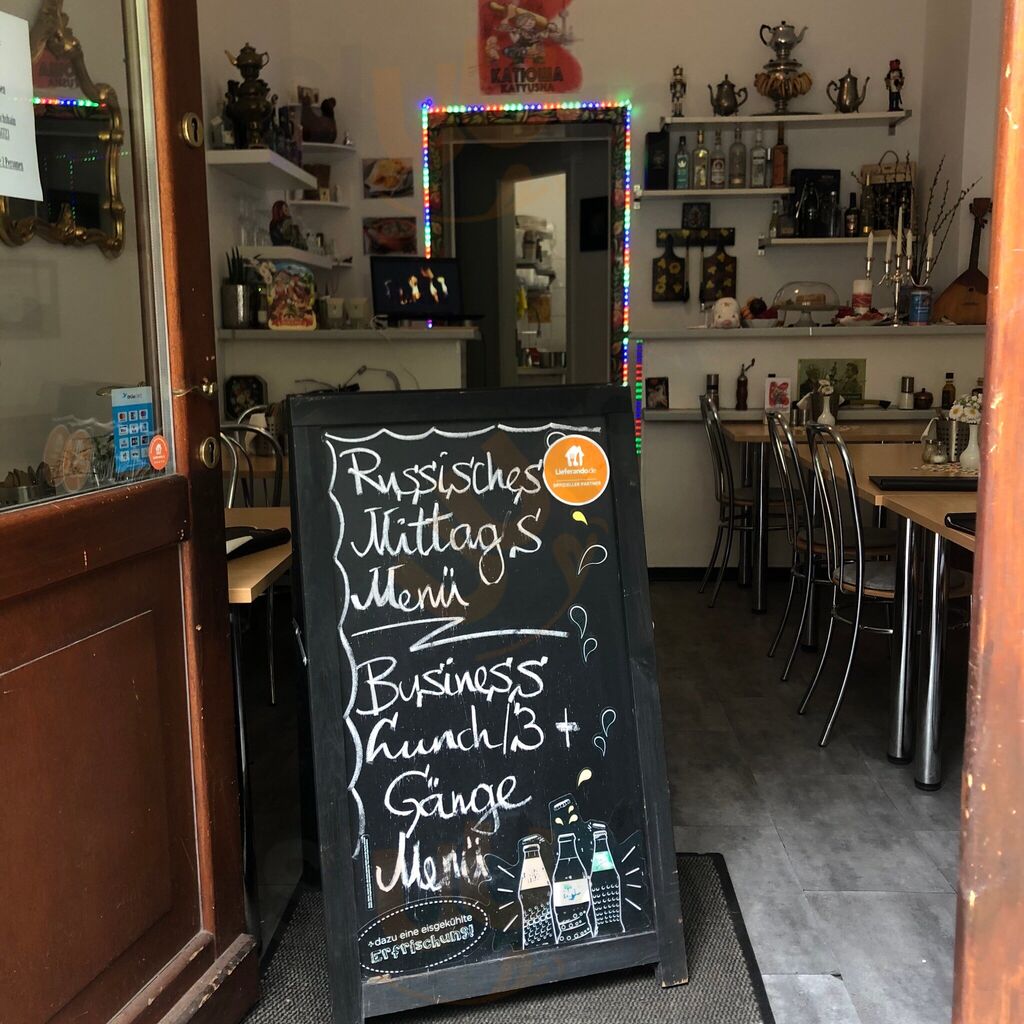 КАТЮША
KATYUSHA
Russisches
Mittag's
Menü
Business
Lunch/3 +
Gänge
Menü
Lieferando.de
OFFIZIELLER PARTNER
+dazu eine eisgekühlte
Erfrischung!